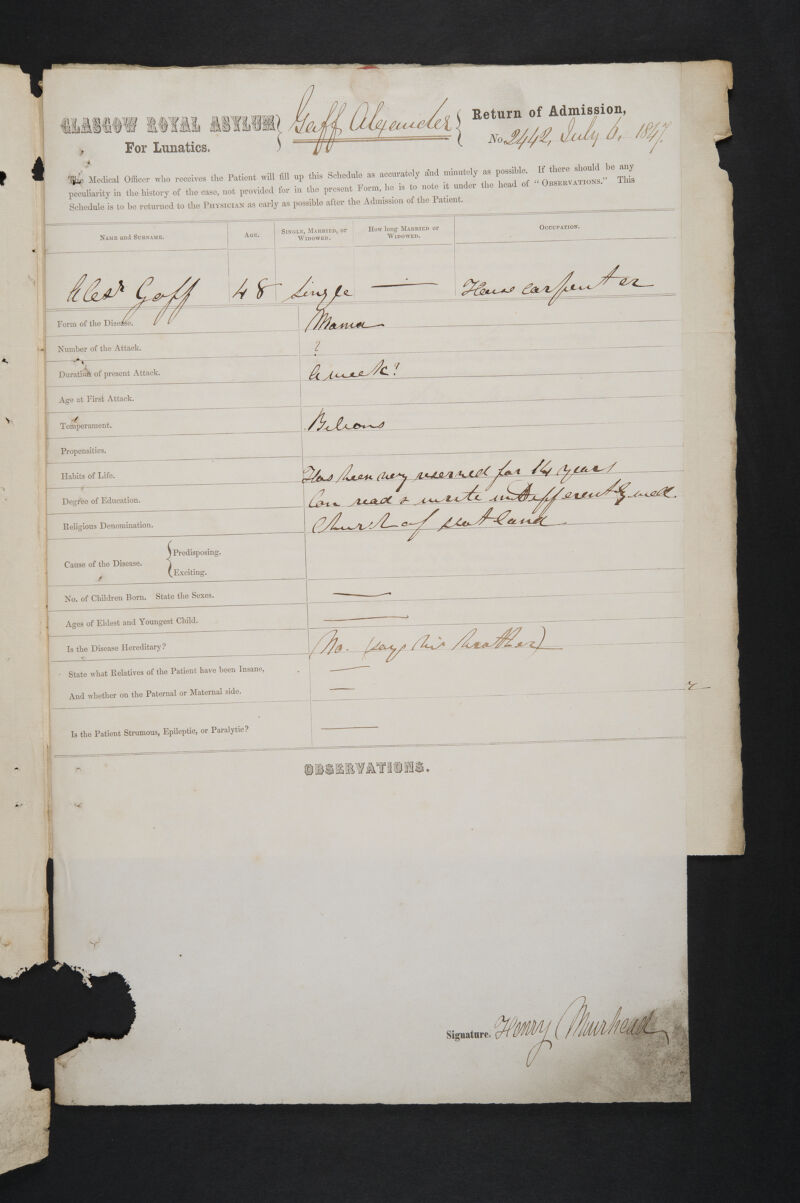 GLASGOW ROYAL ASYLUM
For Lunatics.
Gaff Alexander
Return of Admission,
No. 2442, July 6. 1847.
The Medical Officer who receives the Patient will fill up this Schedule as accurately and minutely as possible. If there should be any
peculiarity in the history of the case, not provided for in the present Form, he is to note it under the head of "OBSERVATIONS." This
Schedule is to be returned to the PHYSICIAN as early as possible after the Admission of the Patient.
NAME and SURNAME. AGE. SINGLE, MARRIED, or WIDOWED. How long MARRIED or WIDOWED. OCCUPATION.
Alexr Gaff 48 single — House carpenter
Form of the Disease. Mania
Number of the Attack. ?
Duration of present Attack. A week?
Age at First Attack.
Temperament. Bilious
Propensities.
Habits of Life. Has been very reserved for 14 years
Degree of Education. Can read & write indifferently well.
Religious Denomination. Church of Scotland
Cause of the Disease. Predisposing.
Exciting.
No. of Children Born. State the Sexes. —
Ages of Eldest and Youngest Child. —
Is the Disease Hereditary? No. (says his brother)
State what Relatives of the Patient have been Insane, —
And whether on the Paternal or Maternal side. —
Is the Patient Strumous, Epileptic, or Paralytic? —
OBSERVATIONS.
Signature. Henry Muirhead